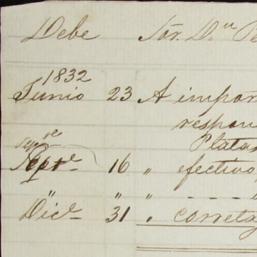 Debe Sor. Dn
1832
Junio 23 A impor
respon
Platas
16 " efectivo
" "
Dice. 31 " correta